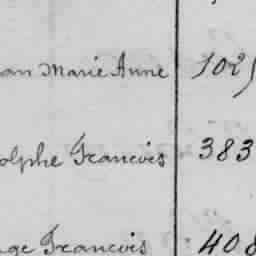 an Marie Anne 102
olphe Francois 383
ge Francois 408